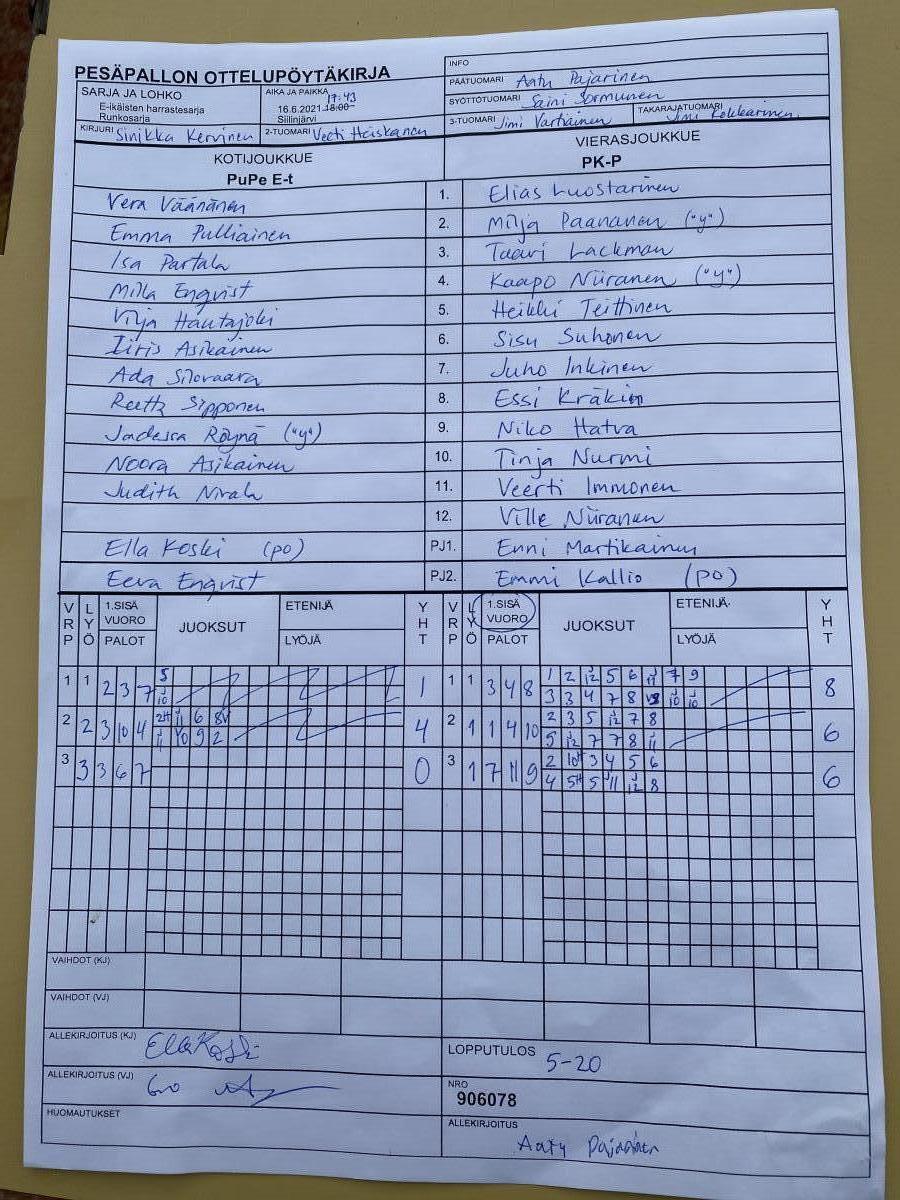 PESÄPALLON OTTELUPÖYTÄKIRJA
INFO
SARJA JA LOHKO
E-ikäisten harrastesarja
Runkosarja
AIKA JA PAIKKA
17:43
16.6.2021 18:00
Siilinjärvi
PÄÄTUOMARI Aatu Pajarinen
SYÖTTÖTUOMARI Saini Sormunen
KIRJURI Sinikka Kervinen
2-TUOMARI Veeti Heiskanen
3-TUOMARI Jimi Vartiainen
TAKARAJATUOMARI Jimi Kokkarinen
KOTIJOUKKUE
PuPe E-t
VIERASJOUKKUE
PK-P
Vera Väänänen 1. Elias Luostarinen
Emma Pulliainen 2. Milja Paananen ("y")
Isa Partala 3. Taavi Lackman
Milla Enqvist 4. Kaapo Niiranen ("y")
Vilja Hautajoki 5. Heikki Teittinen
Iiris Asikainen 6. Sisu Suhonen
Ada Silovaara 7. Juho Inkinen
Reetta Sipponen 8. Essi
Jadessa Röynä ("y") 9. Niko Hatva
Noora Asikainen 10. Tinja Nurmi
Judith 11. Veerti Immonen
12. Ville Niiranen
Ella Koski (po) PJ1. Enni Martikainen
Eeva Enqvist PJ2. Emmi Kallio (po)
VRP LYÖ 1.SISÄ VUORO PALOT JUOKSUT ETENIJÄ LYÖJÄ YHT VRP LYÖ 1.SISÄ VUORO PALOT JUOKSUT ETENIJÄ LYÖJÄ YHT
1 1 2 3 7 5 1 1 1 3 4 8 1 2 12 5 6 11 7 9 8
10 3 3 4 7 8 10 10
2 2 3 10 4 2H 11 6 8 4 2 1 1 4 10 2 3 5 12 7 8 6
11 10 9 2 5 12 7 7 8 11
3 3 3 6 7 0 3 1 7 11 9 2 10H 3 4 5 6 6
4 5H 5 11 12 8
VAIHDOT (KJ)
VAIHDOT (VJ)
ALLEKIRJOITUS (KJ) Ella Koski
LOPPUTULOS 5-20
ALLEKIRJOITUS (VJ)
NRO
906078
HUOMAUTUKSET
ALLEKIRJOITUS
Aatu Pajarinen